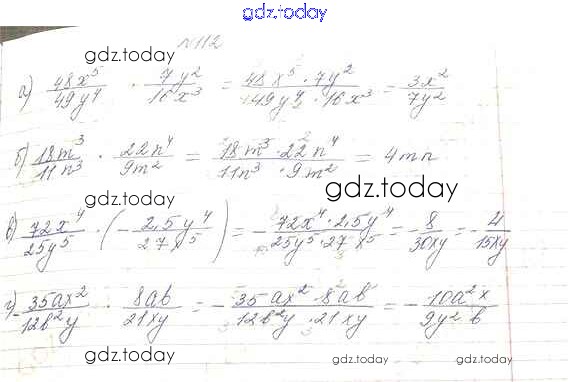 gdz.today
№112
gdz.today gdz.today
а) 48x⁵/49y⁴ · 7y²/16x³ = 48x⁵·7y²/49y⁴·16x³ = 3x²/7y²
б) 18m³/11n³ · 22n⁴/9m² = 18m³·22n⁴/11n³·9m² = 4mn
gdz.today gdz.today
в) 72x⁴/25y⁵ · (-2,5y⁴/27x⁵) = -72x⁴·2,5y⁴/25y⁵·27x⁵ = -8/30xy = -4/15xy
г) -35ax²/12b²y · 8ab/21xy = -35ax²·8ab/12b²y·21xy = -10a²x/9y²b
gdz.today gdz.today gdz.today